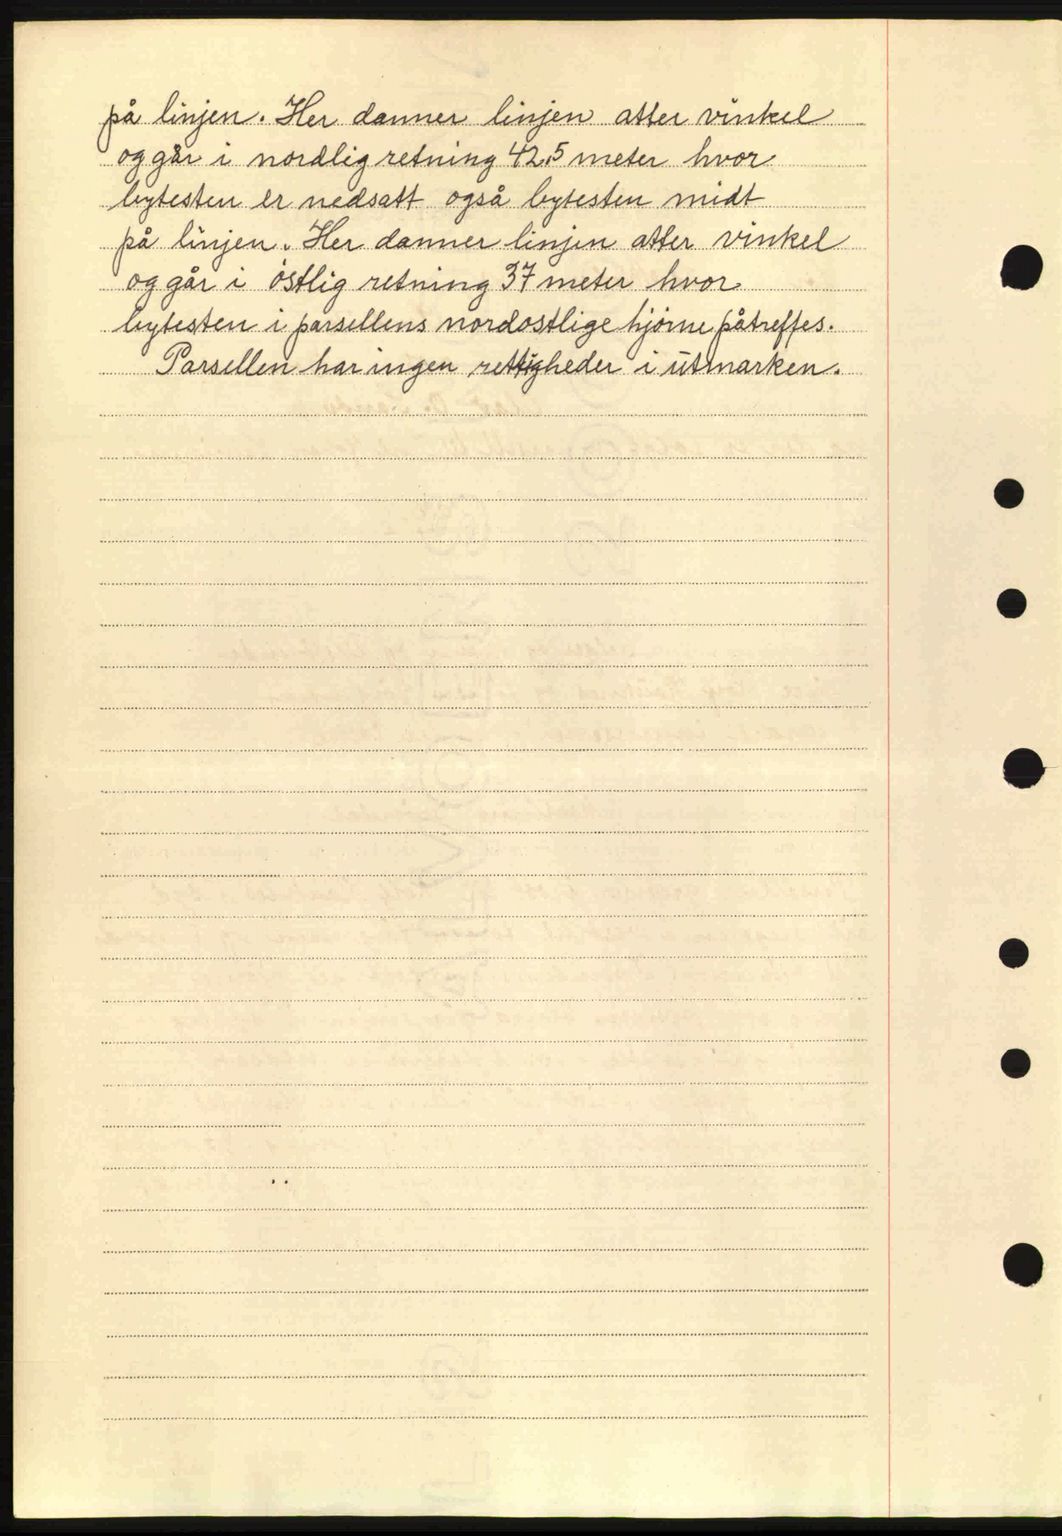 på linjen. Her danner linjen atter vinkel
og går i nordlig retning 42.5 meter hvor
bytesten er nedsatt også bytesten midt
på linjen. Her danner linjen atter vinkel
og går i östlig retning 37 meter hvor
bytesten i parsellens nordostlige hjörne påtreffes.
Parsellen har ingen rettigheder i utmarken.